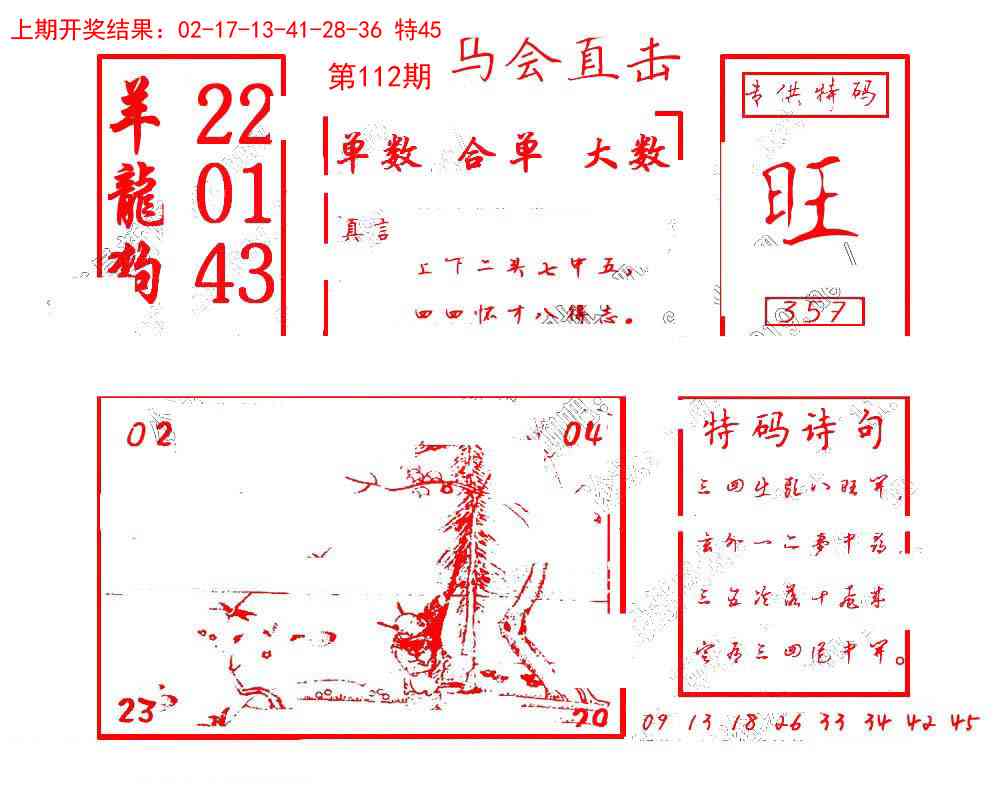 上期开奖结果：02-17-13-41-28-36 特45
第112期 马会直击
羊 22
龍 01
狗 43
单数 合单 大数
真言
上下二头七中五。
四四怀才八得志。
专供特码
旺
357
02 04
23 20
特码诗句
三四生肖八旺开，
玄外一二梦中
三五冷落十
三四尾中开。
09 13 18 26 33 34 42 45